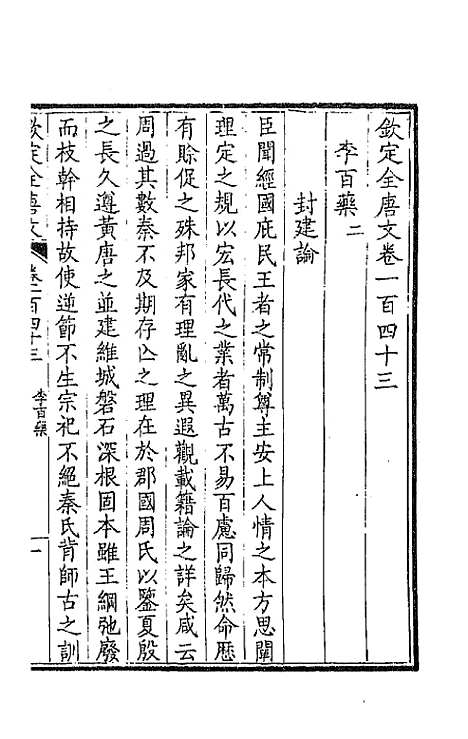 欽定全唐文卷一百四十三
李百藥二
封建論
臣聞經國庇民王者之常制尊主安上人情之本方思闡
理定之規以宏長代之業者萬古不易百慮同歸然命厯
有賒促之殊邦家有理亂之異遐觀載籍論之詳矣咸云
周過其數秦不及期存亾之理在於郡國周氏以鑒夏殷
之長久遵黃唐之並建維城磐石深根固本雖王綱弛廢
而枝幹相持故使逆節不生宗祀不絕秦氏背師古之訓
欽定全唐文 卷一百四十三 李百藥 一